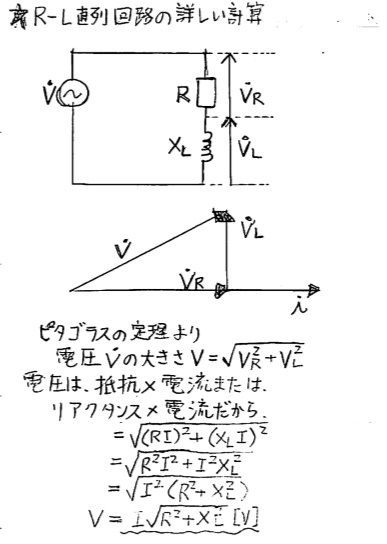 ★R-L直列回路の詳しい計算
V̇
R
V̇R
XL
V̇L
V̇L
V̇
V̇R
i
ピタゴラスの定理より
電圧V̇の大きさ V=√(VR²+VL²)
電圧は、抵抗×電流または、
リアクタンス×電流だから、
=√((RI)²+(XLI)²)
=√(R²I²+I²XL²)
=√(I²(R²+XL²))
V=I√(R²+XL²) [V]